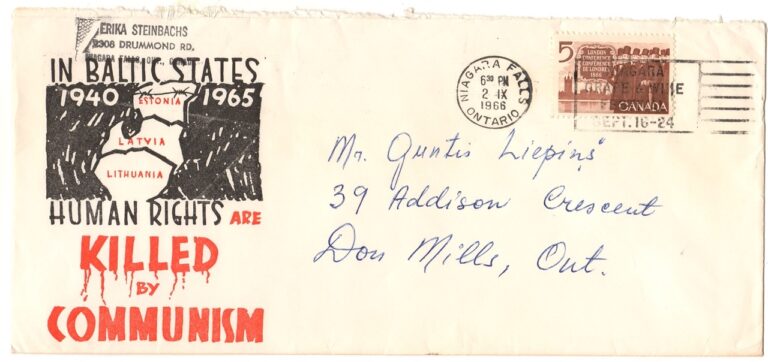 ERIKA STEINBACHS
2308 DRUMMOND RD.
NIAGARA FALLS, ONT., CANADA
IN BALTIC STATES
1940 ESTONIA 1965
LATVIA
LITHUANIA
HUMAN RIGHTS ARE
KILLED
BY
COMMUNISM
NIAGARA FALLS
6 30 PM
2 IX
1966
ONTARIO
5
LONDON
CONFERENCE
CONFÉRENCE
DE LONDRES
1866
CANADA
NIAGARA
GRAPE & WINE
SEPT. 16-24
Mr. Guntis Liepiņš
39 Addison Crescent
Don Mills, Ont.